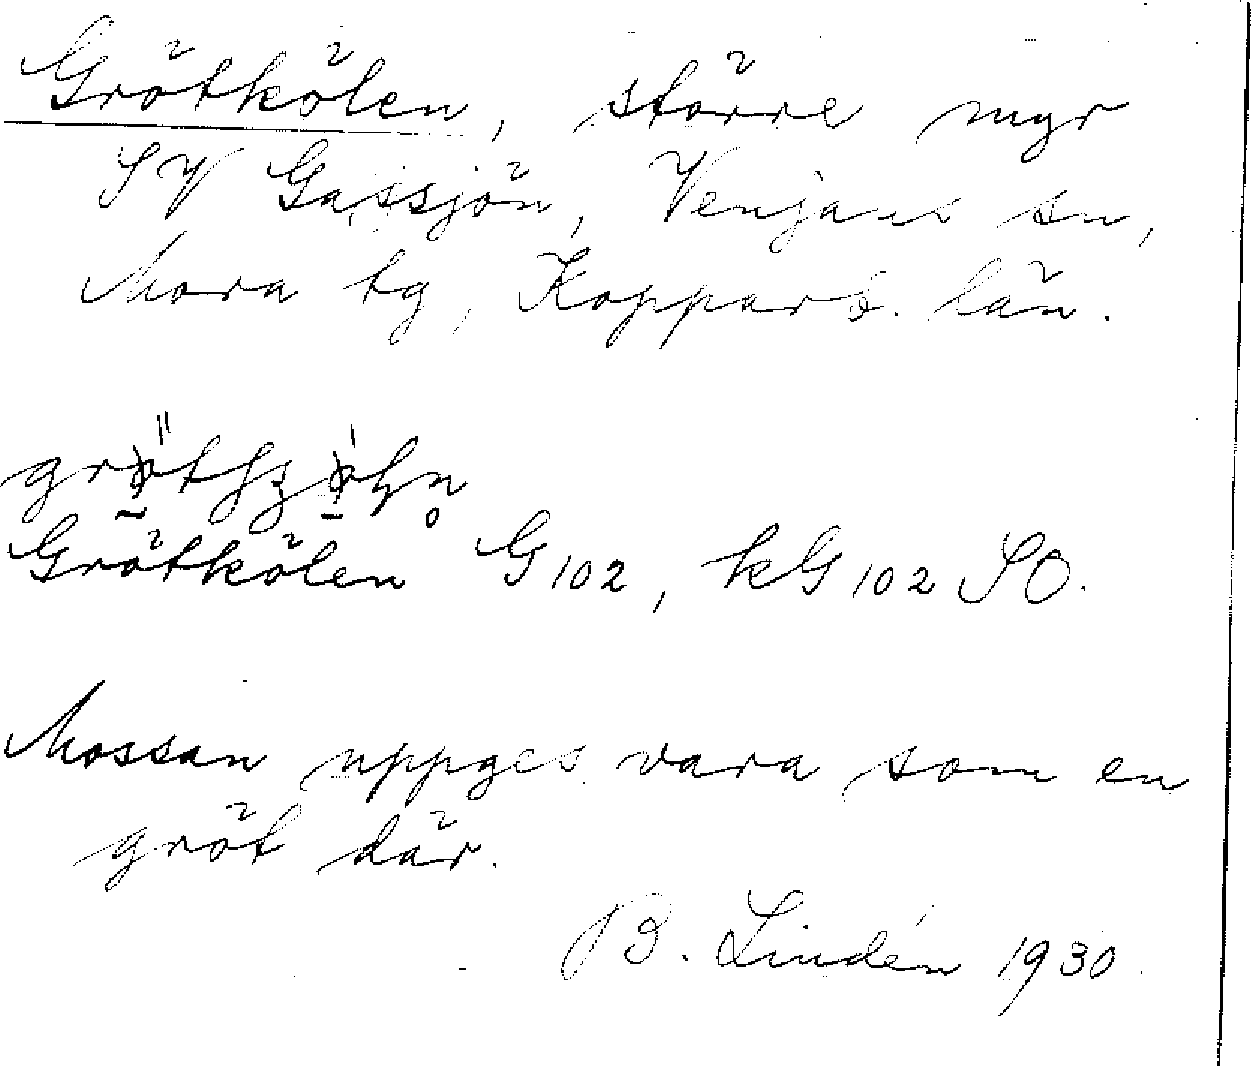 Grötkölen, större myr
SV Gassjön, Venjans sn,
Mora tg, Kopparb. län.
Grötkölen G102, kG102 SO.
Mossan uppges vara som en
gröt där.
B. Lindén 1930